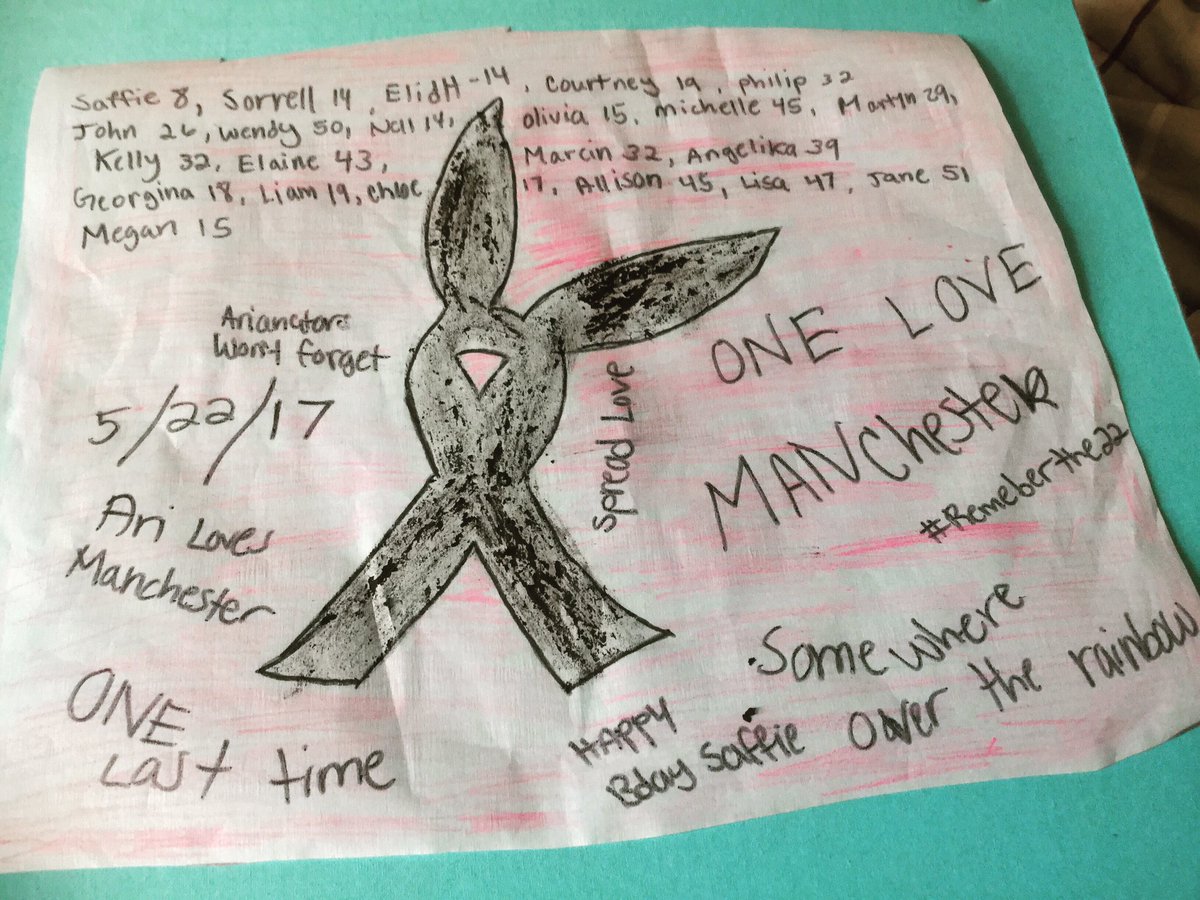 Saffie 8, Sorrell 14, ElidH - 14, Courtney 19, Philip 32
John 26, Wendy 50, Nell 14, olivia 15, michelle 45, Martyn 29,
Kelly 32, Elaine 43, Marcin 32, Angelika 39
Georgina 18, Liam 19, Chloe 17, Allison 45, Lisa 47, Jane 51
Megan 15
Arianators
Won't forget
5/22/17
Ari Loves
Manchester
ONE
Last time
Spread Love
ONE LOVE
MANChester
#Remeberthe22
Somewhere
Over the rainbow
HAPPY
Bday Saffie